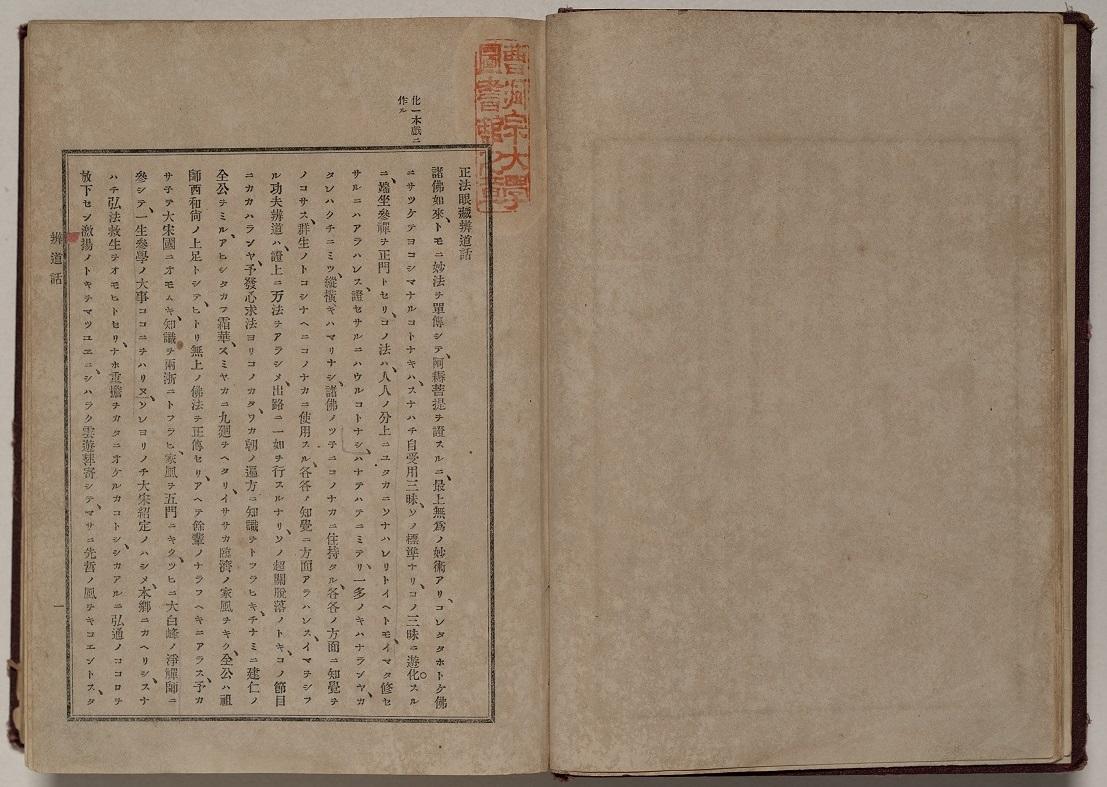 曹洞宗大學
圖書館之章
化一本戯ニ
作ル
正法眼藏辨道話
諸佛如來、トモニ妙法ヲ單傳シテ、阿耨菩提ヲ證スルニ、最上無爲ノ妙術アリ、コレタタホトケ佛
ニサツケテヨコシマナルコトナキハ、スナハチ自受用三昧、ソノ標準ナリ、コノ三昧ニ遊化スル
ニ、端坐參禪ヲ正門トセリ、コノ法ハ、人人ノ分上ニユタカニソナハレリトイヘトモ、イマタ修セ
サルニハアラハレス、證セサルニハウルコトナシ、ハナテハテニミテリ、一多ノキハナランヤ、カ
タレハクチニミツ、縱橫キハマリナシ、諸佛ノツネニコノナカニ住持タル、各各ノ方面ニ知覺ヲ
ノコサス、群生ノトコシナヘニコノナカニ使用スル、各各ノ知覺ニ方面アラハレス、イマヲシフ
ル功夫辨道ハ、證上ニ万法ヲアラシメ、出路ニ一如ヲ行スルナリ、ソノ超關脫落ノトキ、コノ節目
ニカカハランヤ、予發心求法ヨリコノカタ、ワカ朝ノ遍方ニ知識ヲトフラヒキ、チナミニ建仁ノ
全公ヲミル、アヒシタカフ霜華、スミヤカニ九廻ヲヘタリ、イササカ臨濟ノ家風ヲキク、全公ハ祖
師西和尙ノ上足トシテ、ヒトリ無上ノ佛法ヲ正傳セリ、アヘテ餘輩ノナラフヘキニアラス、予カ
サネテ大宋國ニオモムキ、知識ヲ兩浙ニトフラヒ、家風ヲ五門ニキク、ツヒニ大白峰ノ淨禪師ニ
參シテ、一生參學ノ大事ココニヲハリヌ、ソレヨリノチ、大宋紹定ノハシメ、本鄕ニカヘリシスナ
ハチ、弘法救生ヲオモヒトセリ、ナホ重擔ヲカタニオケルカコトシ、シカアルニ、弘通ノココロヲ
放下セン激揚ノトキヲマツユエニ、シハラク雲遊萍寄シテ、マサニ先哲ノ風ヲキコエントス、タ
辨道話
一